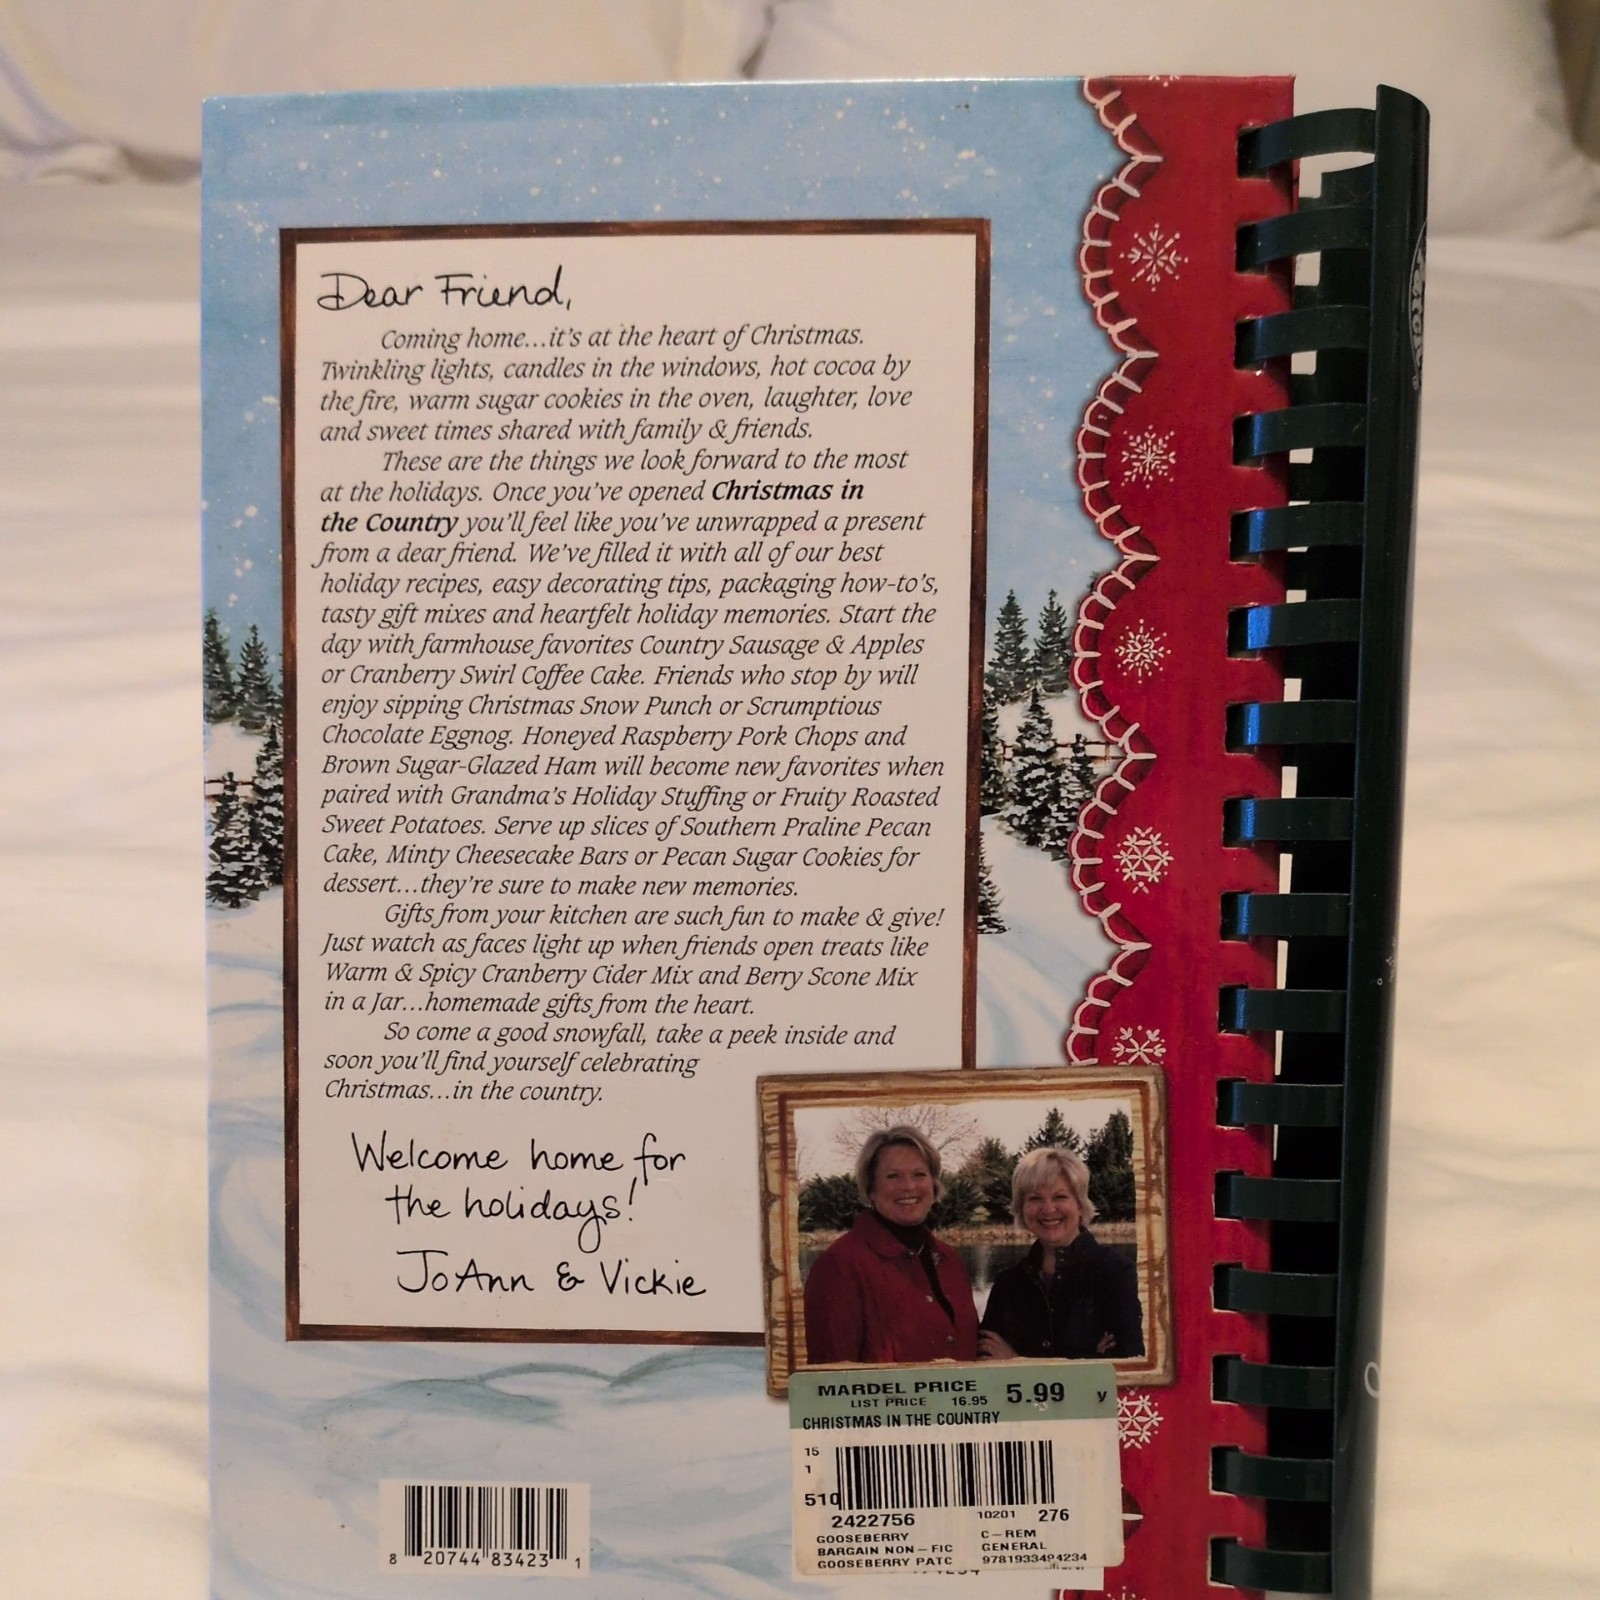 Dear Friend,
Coming home...it's at the heart of Christmas.
Twinkling lights, candles in the windows, hot cocoa by
the fire, warm sugar cookies in the oven, laughter, love
and sweet times shared with family & friends.
These are the things we look forward to the most
at the holidays. Once you've opened Christmas in
the Country you'll feel like you've unwrapped a present
from a dear friend. We've filled it with all of our best
holiday recipes, easy decorating tips, packaging how-to's,
tasty gift mixes and heartfelt holiday memories. Start the
day with farmhouse favorites Country Sausage & Apples
or Cranberry Swirl Coffee Cake. Friends who stop by will
enjoy sipping Christmas Snow Punch or Scrumptious
Chocolate Eggnog. Honeyed Raspberry Pork Chops and
Brown Sugar-Glazed Ham will become new favorites when
paired with Grandma's Holiday Stuffing or Fruity Roasted
Sweet Potatoes. Serve up slices of Southern Praline Pecan
Cake, Minty Cheesecake Bars or Pecan Sugar Cookies for
dessert...they're sure to make new memories.
Gifts from your kitchen are such fun to make & give!
Just watch as faces light up when friends open treats like
Warm & Spicy Cranberry Cider Mix and Berry Scone Mix
in a Jar...homemade gifts from the heart.
So come a good snowfall, take a peek inside and
soon you'll find yourself celebrating
Christmas...in the country.
Welcome home for
the holidays!
JoAnn & Vickie
MARDEL PRICE 5.99 y
LIST PRICE 16.95
CHRISTMAS IN THE COUNTRY
15
1
510
2422756 10201 276
GOOSEBERRY C-REM
BARGAIN NON-FIC GENERAL
GOOSEBERRY PATC 9781933494234
8 20744 83423 1